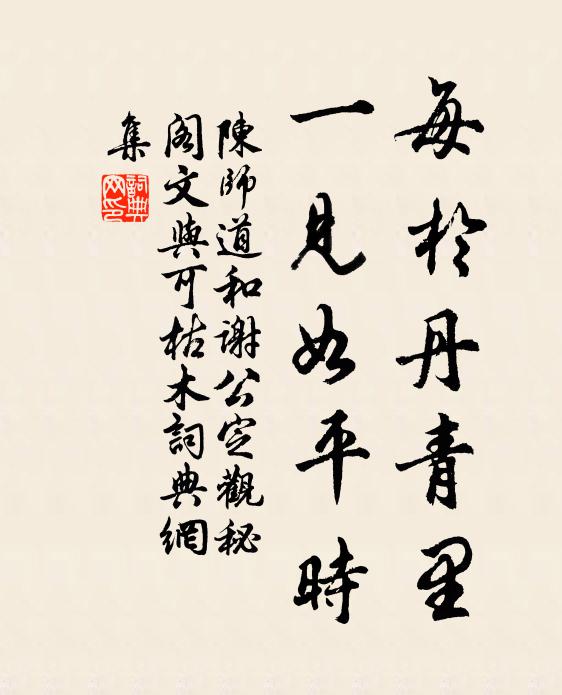 每於丹青里
一見如平時
陳師道和謝公定觀秘
閣文與可枯木詞典網
集
詞典
网印